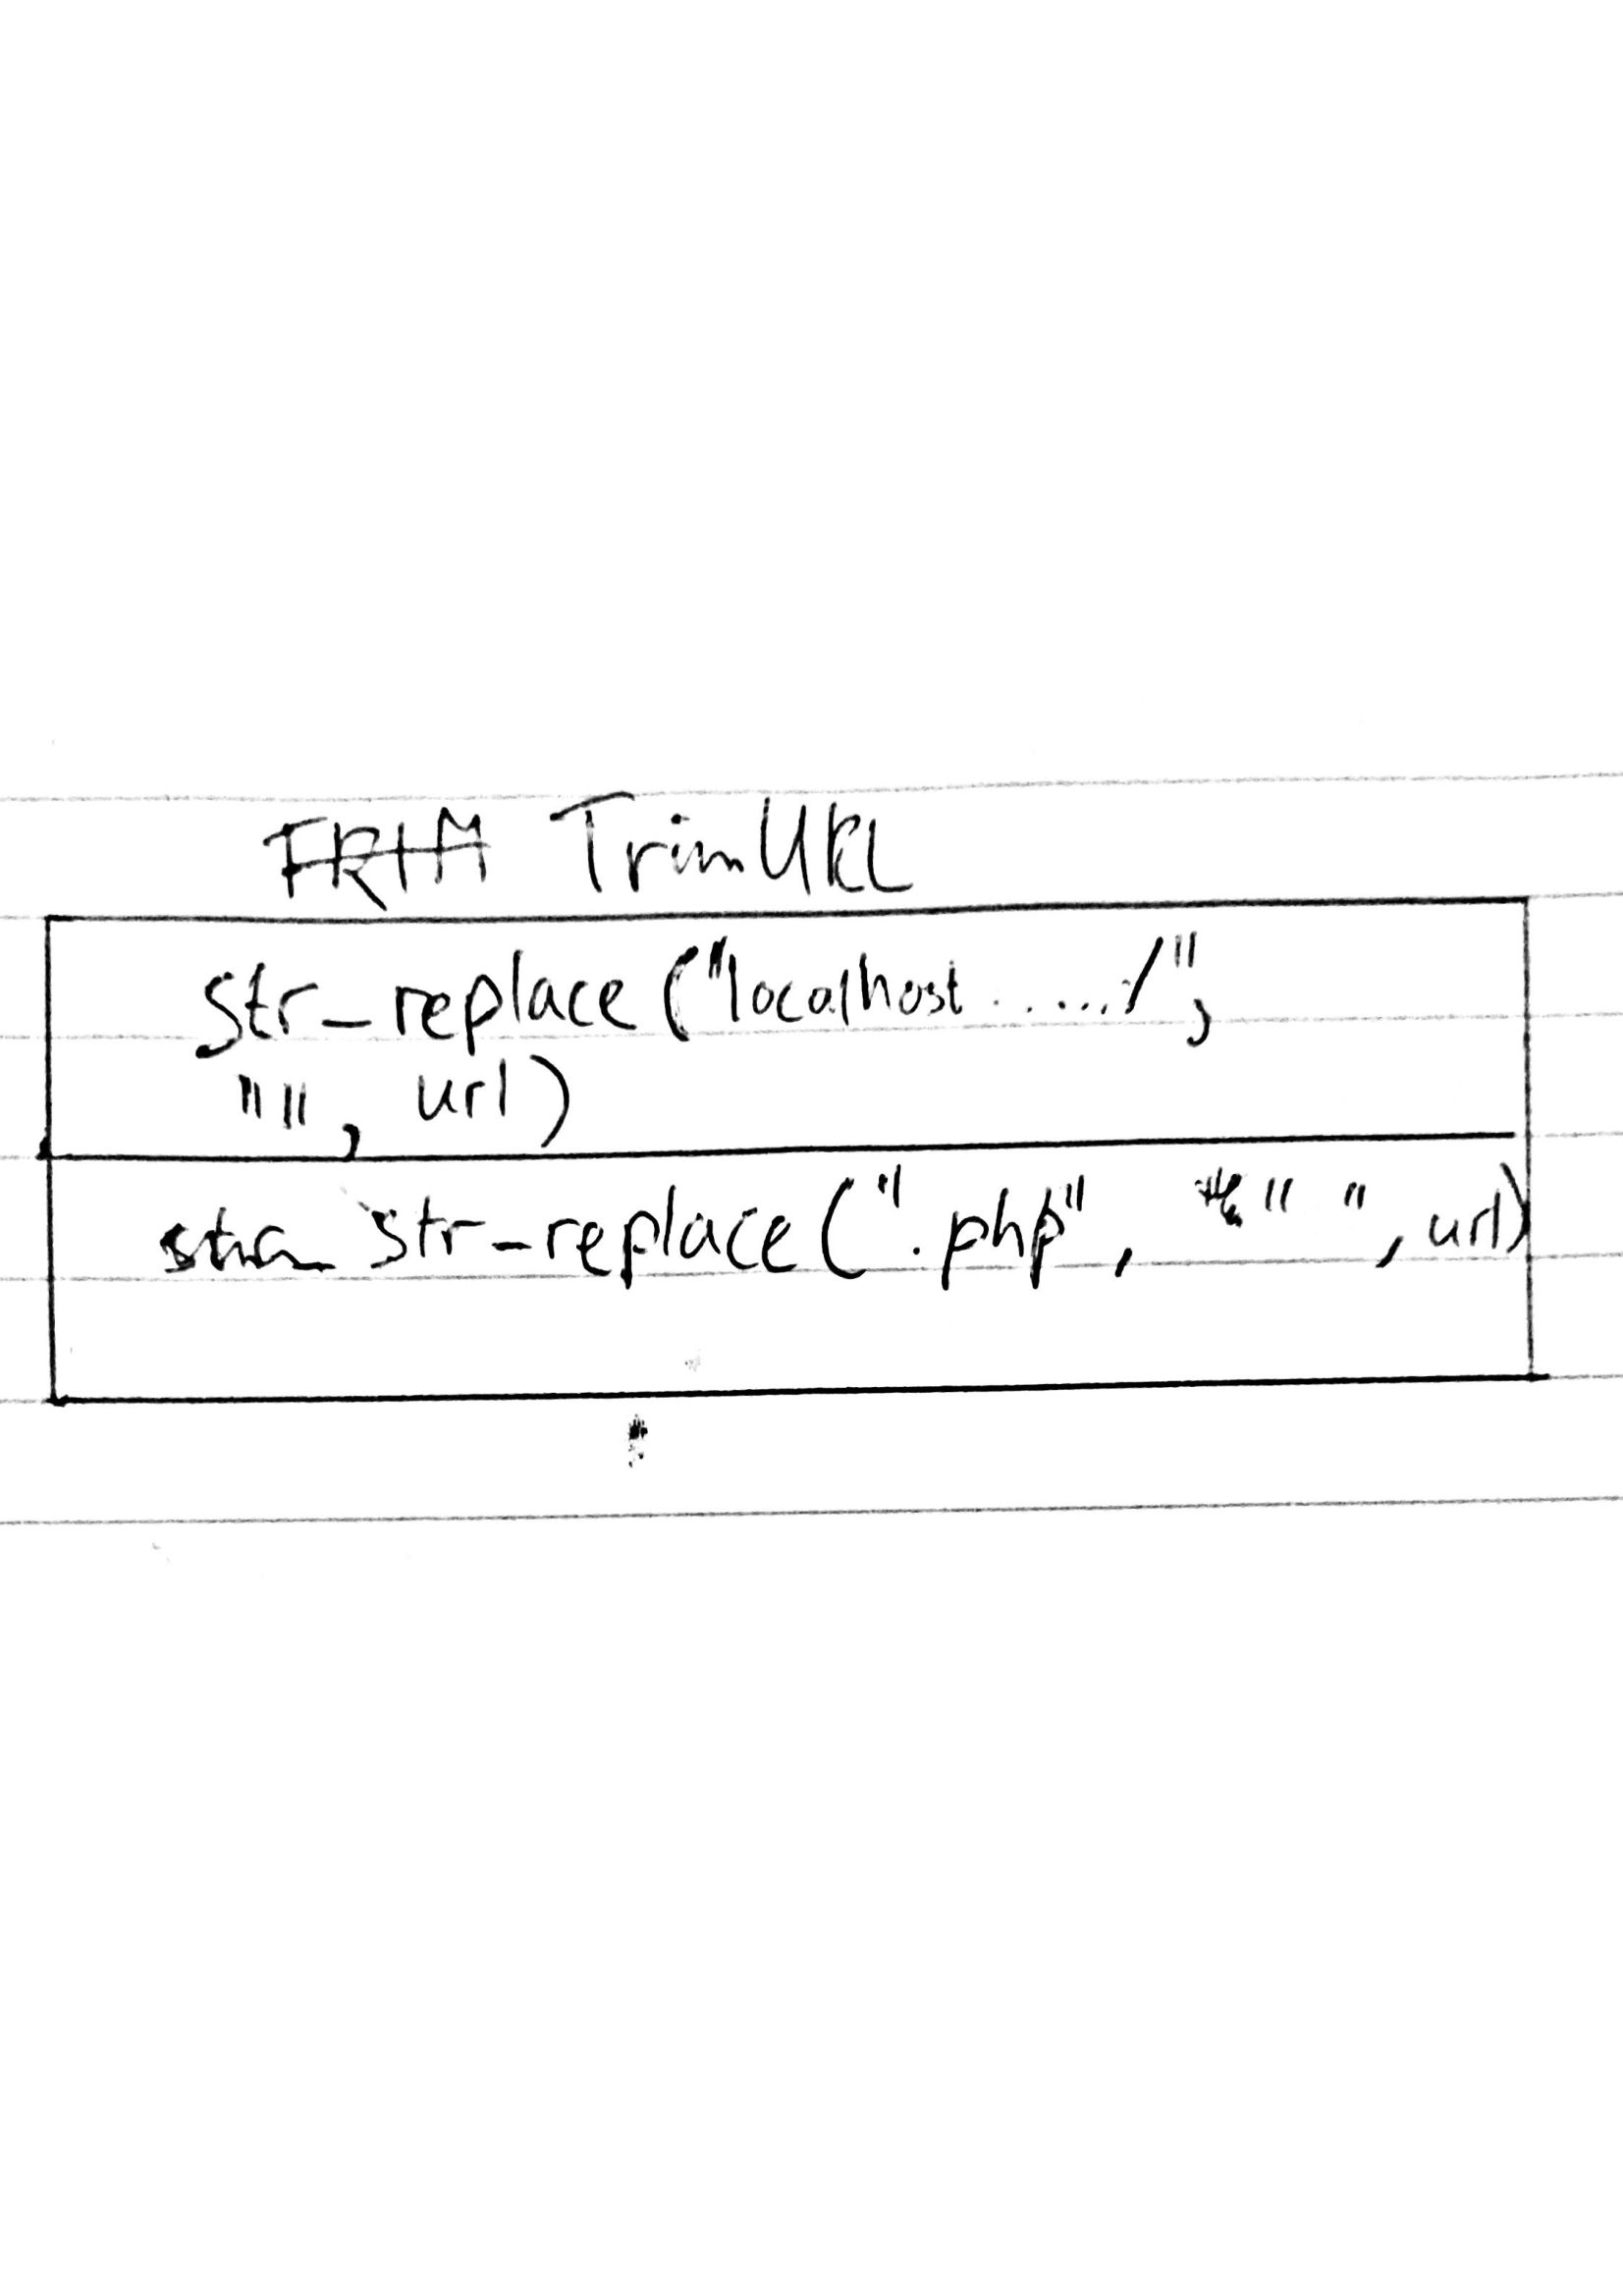 TRIM TrimURL
str_replace("localhost ...../",
"", url)
str_replace(".php", " ", url)